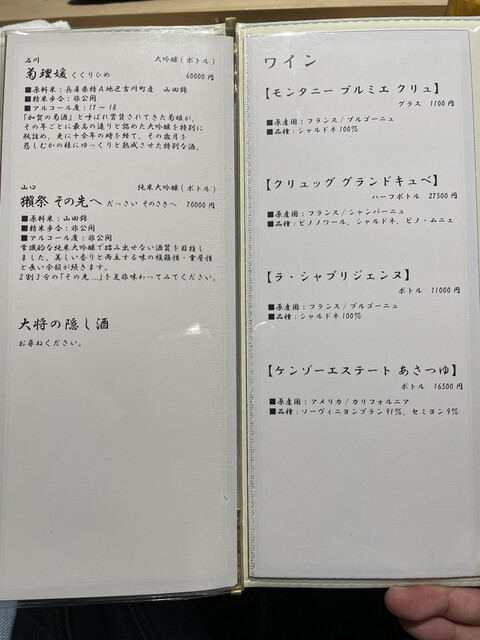 石川 大吟醸(ボトル)
菊理媛 くくりひめ 60000円
■原料米:兵庫県特A地区吉川町産 山田錦
■精米歩合:非公開
■アルコール度:17~18
「加賀の菊酒」と呼ばれ賞賛されてきた菊姫が、
その年ごとに最高の造りと認めた大吟醸を特別に
瓶詰め、更に十余年の時を経て、その歳月を
慈しむかの様にゆっくりと熟成させた特別な酒。
山口 純米大吟醸(ボトル)
獺祭 その先へ だっさい そのさきへ 70000円
■原料米:山田錦
■精米歩合:非公開
■アルコール度:非公開
常識的な純米大吟醸で踏み出せない酒質を目指し
ました。美しい香りと両立する味の複雑性・重層性
と長い余韻が続きます。
2割3分の「その先…」を是非味わってみてください。
大将の隠し酒
お尋ねください。
ワイン
【モンタニー プルミエ クリュ】
グラス 1100円
■原産国:フランス/ブルゴーニュ
■品種:シャルドネ100%
【クリュッグ グランドキュベ】
ハーフボトル 27500円
■原産国:フランス/シャンパーニュ
■品種:ピノノワール、シャルドネ、ピノ・ムニエ
【ラ・シャブリジェンヌ】
ボトル 11000円
■原産国:フランス/ブルゴーニュ
■品種:シャルドネ100%
【ケンゾーエステート あさつゆ】
ボトル 16500円
■原産国:アメリカ/カリフォルニア
■品種:ソーヴィニヨンブラン91%、セミヨン9%